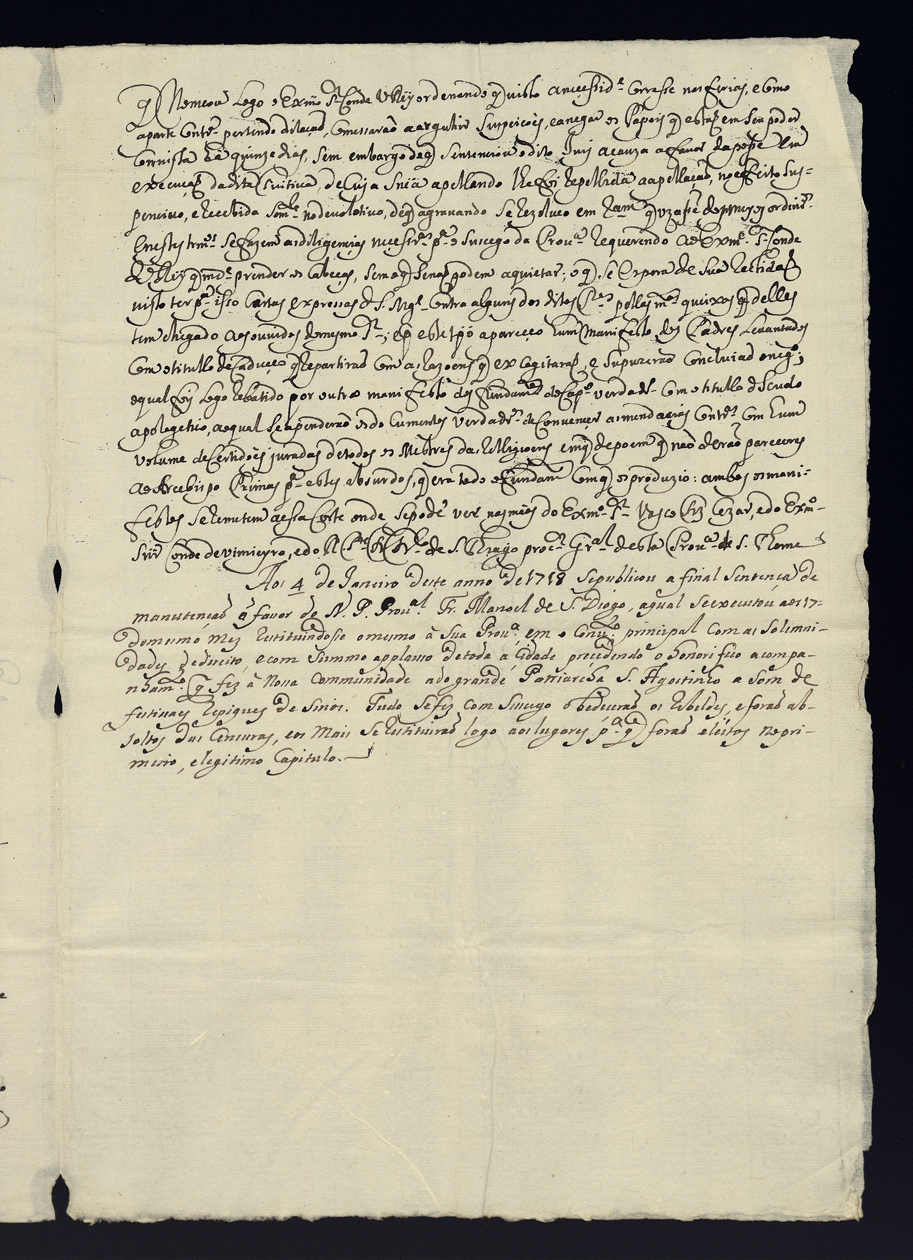 q̃ Nomeou logo o Exmo Sr Conde V Rey ordenando q̃ visto a necessid.e corresse nas ferias, e como
a parte contr.a pertendeo dilaçaõ, começaraõ a arguhir suspeicoẽs, e a negar os Papeis q̃ estaõ em seu poder
Com vista ha quinze dias, sem embargo do q̃ sentenciou o dito Juis a cauza a favor da posse e na
execuçaõ da dita sentença, de cuja Snça apellando lhe foy repellida a apellaçaõ, no effeito sus-
pencivo, e recebida som.te no devolutivo, de q̃ agravando se rezolveo em Ram
Enestes trm.os se fazem as diligencias necessr.as p.a o sucego da Prou.a requerendo ao Exm.o S.r Conde
V Rey q̃ m.de prender os cabeças, sem o q̃ se naõ podem aquietar; o q̃ se espera de sua rectidaõ
visto ter p.a isso Cartas expressas de S. Mg.e contra alguns dos ditos P.es pellas m.tas queixas q̃ delles
tem chegado aos ouvidos do mesmo Sr; e p.r este tpõ apareceo hum Manifesto dos Padres levantados
Com o titullo de seduçaõ q̃ repartiraõ com as razoens q̃ excogitaraõ, e supuzeraõ concluiaõ o neg.o;
o qual foy logo rebatido por outro manifesto dos fundam.tos do Cap.o verdad.ro Com o titullo de Scudo
apologetico, ao qual se apenderaõ os documentos verdadr.os de convencer as mendacias contr.as Com hum
volume de Certidoẽs juradas de todos os Mestres das Relligioens em q̃ depoem q̃ naõ deraõ pareceres
ao Arcebispo Primas p.a estes absurdos, q̃ era todo o fundam.to com q̃ os produzio: ambos os mani-
festos se remetem a essa Corte onde se podẽ ver nas maõs do Exm.o Sr Vasco Frz Cezar, e do Exm.o
Snr Conde de Vimieyro, e do R. P.e Fr de S. Thiago proc.or Gr.al desta Prou.a de S. Thome
Aos 4 de Janeiro deste anno de 1718 se publicou a final Sentença de
manutençaõ a favor de N. P. Prou.al Fr. Manoel de S. Diogo, a qual se executou aos 17
do mesmo mez restituindose o mesmo á sua Prou.a, em o Conu.to principal com as solemni-
dades de direito, e com summo applauso de toda a Cidade precedendo o honorifico acompa-
nham.to (q̃ fez á Nossa Communidade a do grande Patriarcha S. Agostinho a som de
festivaes repiques de sinos. Tudo se fez com sucego obedeceraõ os rebeldes, e foraõ ab-
soltos das Censuras, e os Mais se restituiraõ logo aos lugares p.a q̃ foraõ eleitos no pri-
meiro, e legitimo Capitulo.